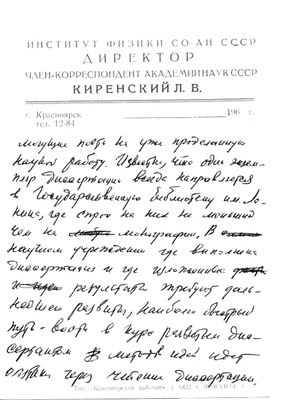 ИНСТИТУТ ФИЗИКИ СО АН СССР
ДИРЕКТОР
ЧЛЕН-КОРРЕСПОНДЕНТ АКАДЕМИИ НАУК СССР
КИРЕНСКИЙ Л. В.
г. Красноярск 196 г.
тел. 12-84
могущие пойти на уже проделанную
научную работу. Известно, что один экзем-
пляр диссертации всегда направляется
в Государственную библиотеку им. Ле-
нина, где спрос на них не меньший
чем на монографии. В
научном учреждении где выполнена
диссертация и где изложенные
и результаты требуют даль-
нейшего развития, наиболее быстрый
путь войти в курс развитых дис-
сертантом методов идей идет
опять таки через чтение диссертации.